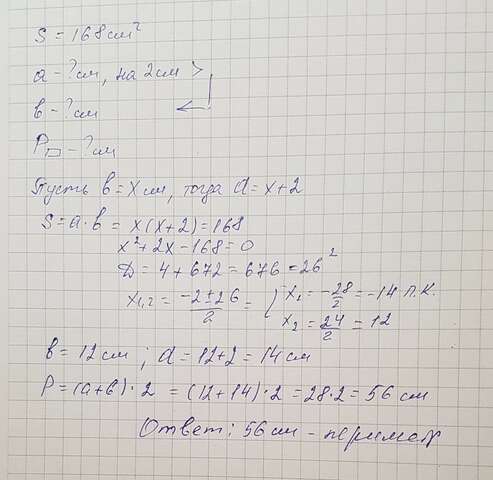 S = 168 см²
a - ? см, на 2 см >
в - ? см
P▭ - ? см
Пусть в = x см, тогда a = x + 2
S = a · в = x(x+2) = 168
x² + 2x - 168 = 0
D = 4 + 672 = 676 = 26²
x₁,₂ = (-2 ± 26)/2 = { x₁ = -28/2 = -14 п.к.
x₂ = 24/2 = 12
в = 12 см ; a = 12 + 2 = 14 см
P = (a+в) · 2 = (12 + 14) · 2 = 28 · 2 = 56 см
Ответ: 56 см - перимет